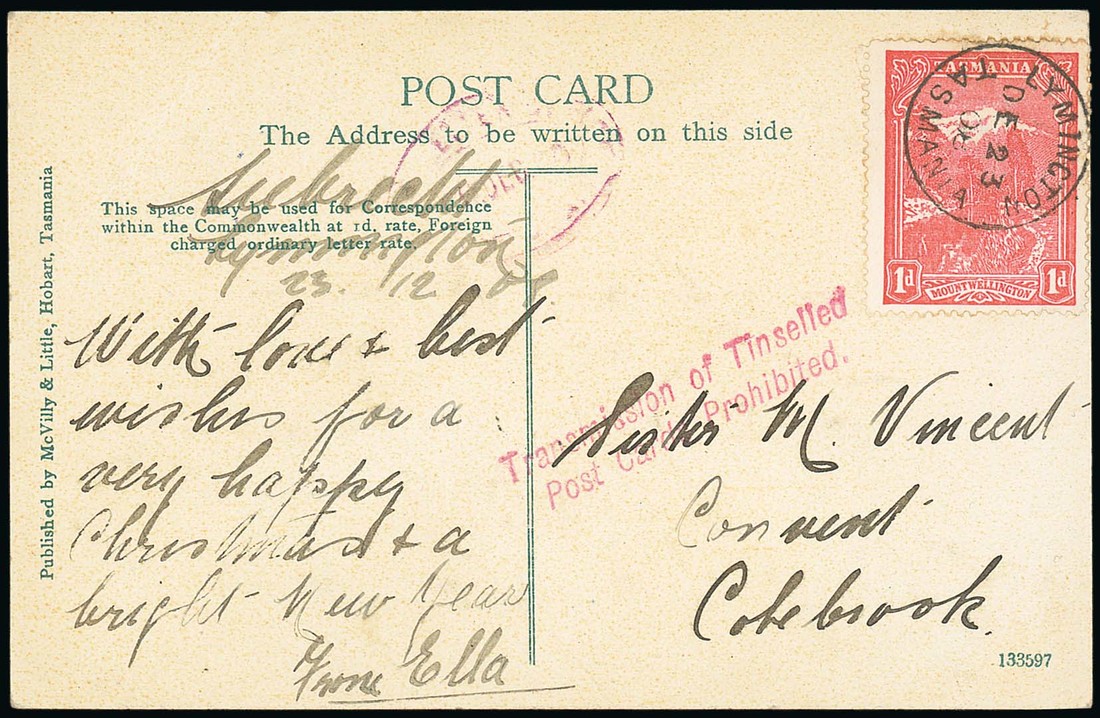 POST CARD
The Address to be written on this side
TASMANIA
1d
1d
MOUNT WELLINGTON
LYMINGTON
DE 23
06
TASMANIA
DEC
This space may be used for Correspondence
within the Commonwealth at 1d. rate, Foreign
charged ordinary letter rate.
Lymington
23. 12
With love & best
wishes for a
very happy
Christmas & a
bright New Year
From Ella
Transmission of Tinselled
Post Cards Prohibited.
Sister M. Vincent
Convent
Colebrook.
133597
Published by McVilly & Little, Hobart, Tasmania